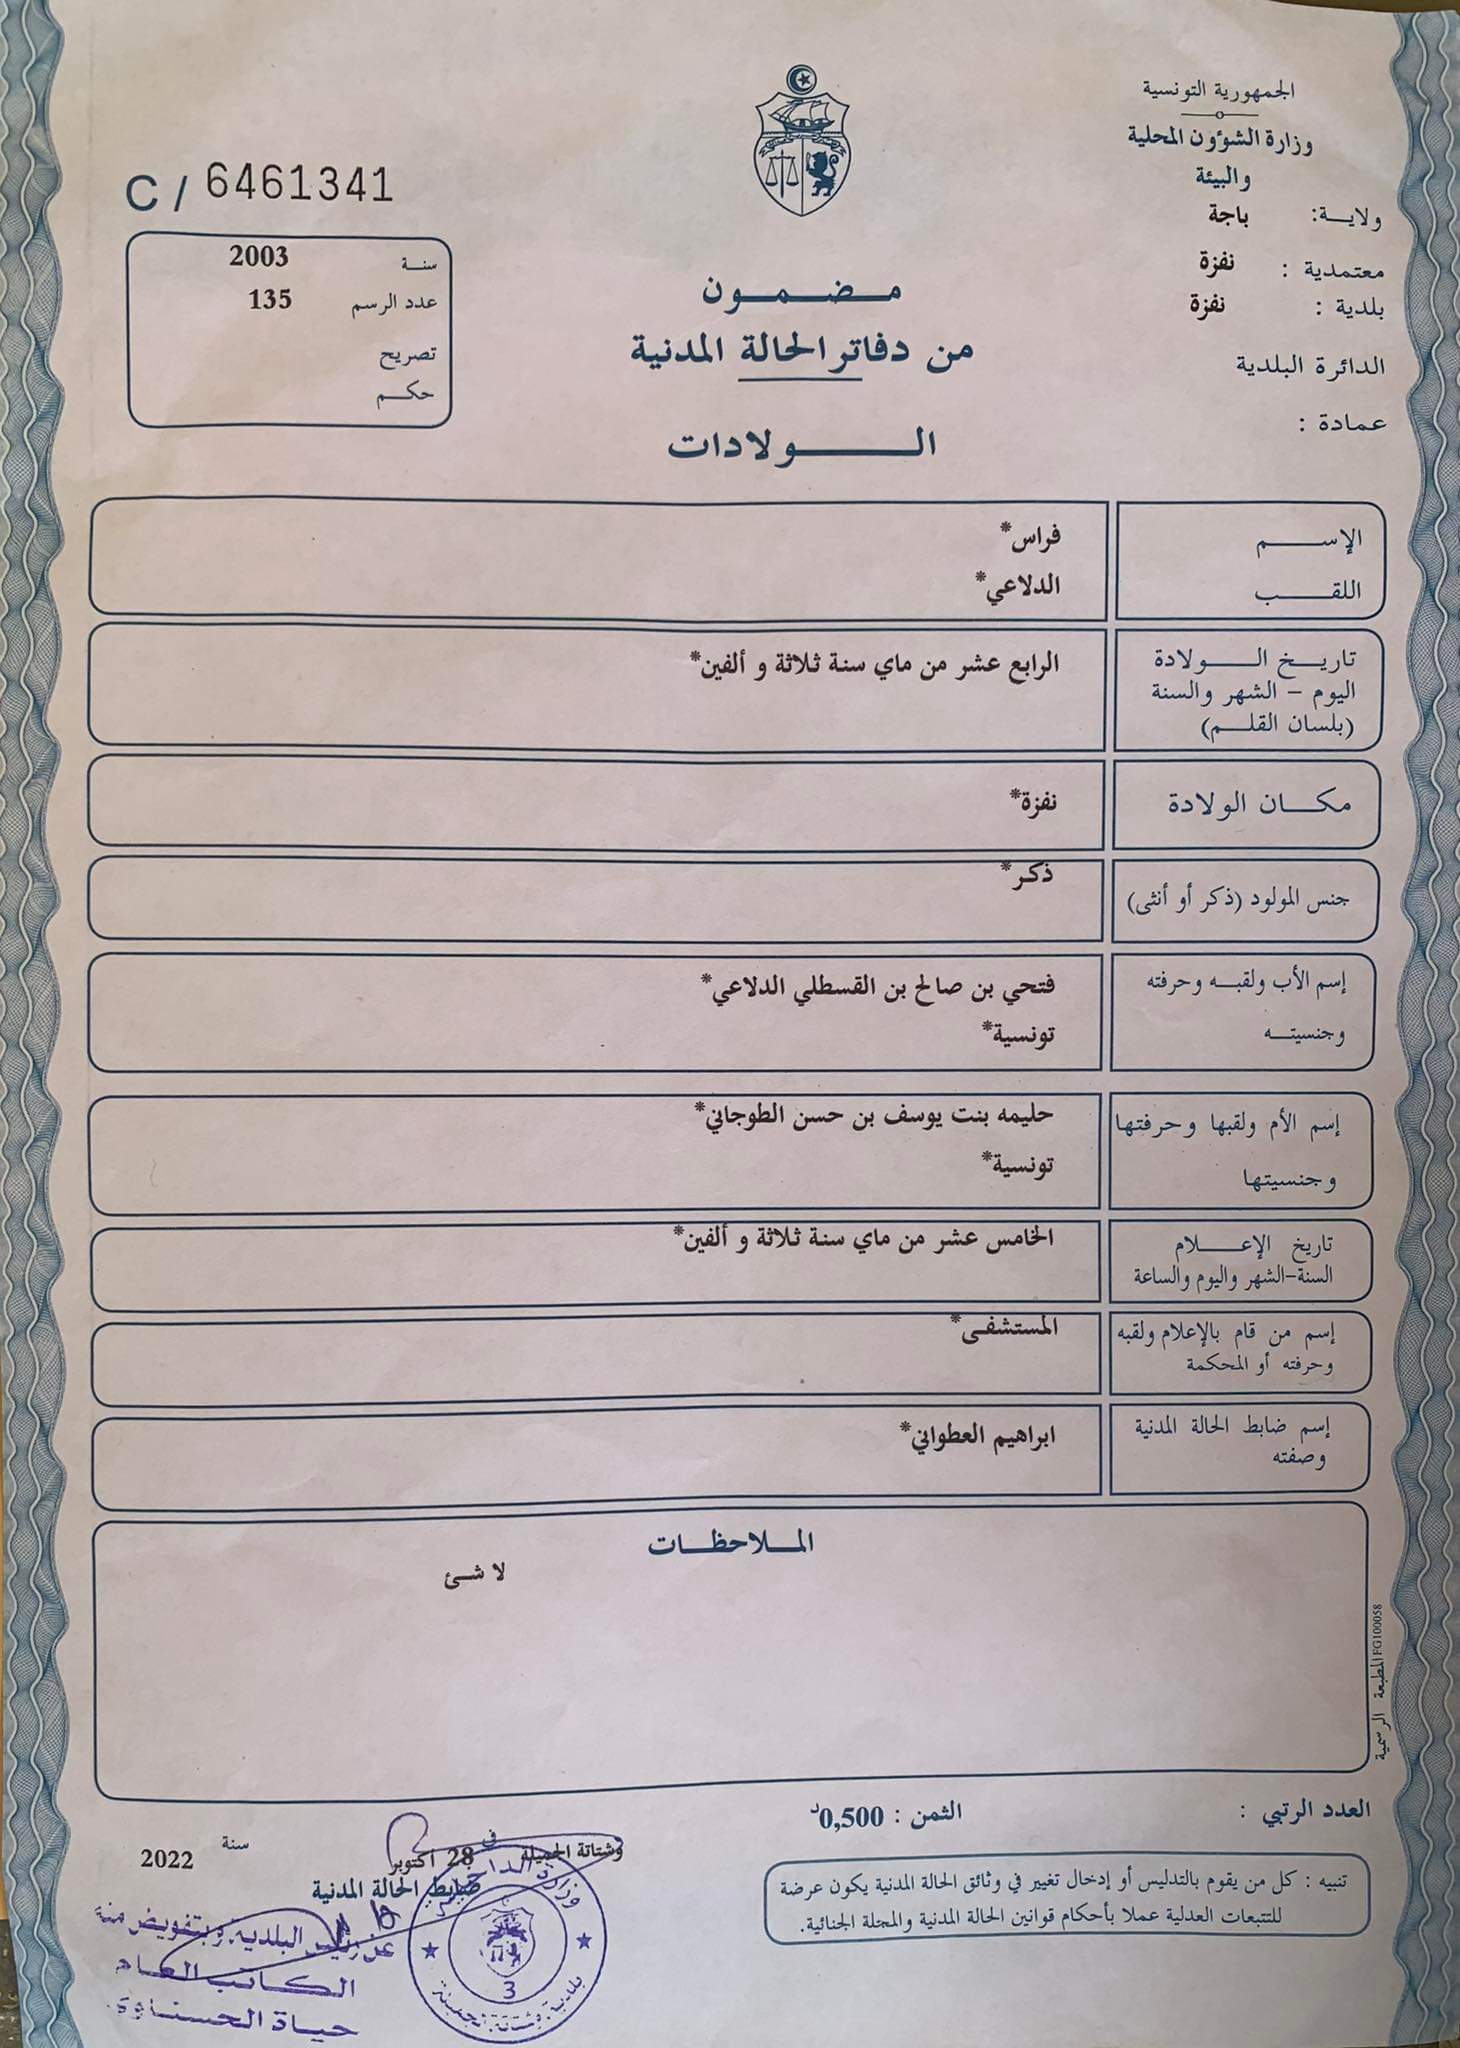 الجمهورية التونسية
وزارة الشؤون المحلية
والبيئة
ولاية: باجة
معتمدية : نفزة
بلدية : نفزة
الدائرة البلدية
عمادة :
C / 6461341
سنة 2003
عدد الرسم 135
تصريح
حكم
مضمون
من دفاتر الحالة المدنية
الولادات
الإسم فراس*
اللقب الدلاعي*
تاريخ الولادة الرابع عشر من ماي سنة ثلاثة و ألفين*
اليوم - الشهر والسنة
(بلسان القلم)
مكان الولادة نفزة*
جنس المولود (ذكر أو أنثى) ذكر*
إسم الأب ولقبه وحرفته فتحي بن صالح بن القسطلي الدلاعي*
وجنسيته تونسية*
إسم الأم ولقبها وحرفتها حليمه بنت يوسف بن حسن الطوجاني*
وجنسيتها تونسية*
تاريخ الإعلام الخامس عشر من ماي سنة ثلاثة و ألفين*
السنة-الشهر واليوم والساعة
إسم من قام بالإعلام ولقبه المستشفى*
وحرفته أو المحكمة
إسم ضابط الحالة المدنية ابراهيم العطواني*
وصفته
الملاحظات
لا شئ
المطبعة الرسمية FG100058
العدد الرتبي :
الثمن : 0,500د
تنبيه : كل من يقوم بالتدليس أو إدخال تغيير في وثائق الحالة المدنية يكون عرضة
للتتبعات العدلية عملا بأحكام قوانين الحالة المدنية والمجلة الجنائية.
وشتاتة الجميلة في 28 أكتوبر سنة 2022
ضابط الحالة المدنية
عن رئيس البلدية وبتفويض منه
الكاتب العام
حياة الحسناوي
وزارة الداخلية
3
بلدية وشتاتة الجميلة